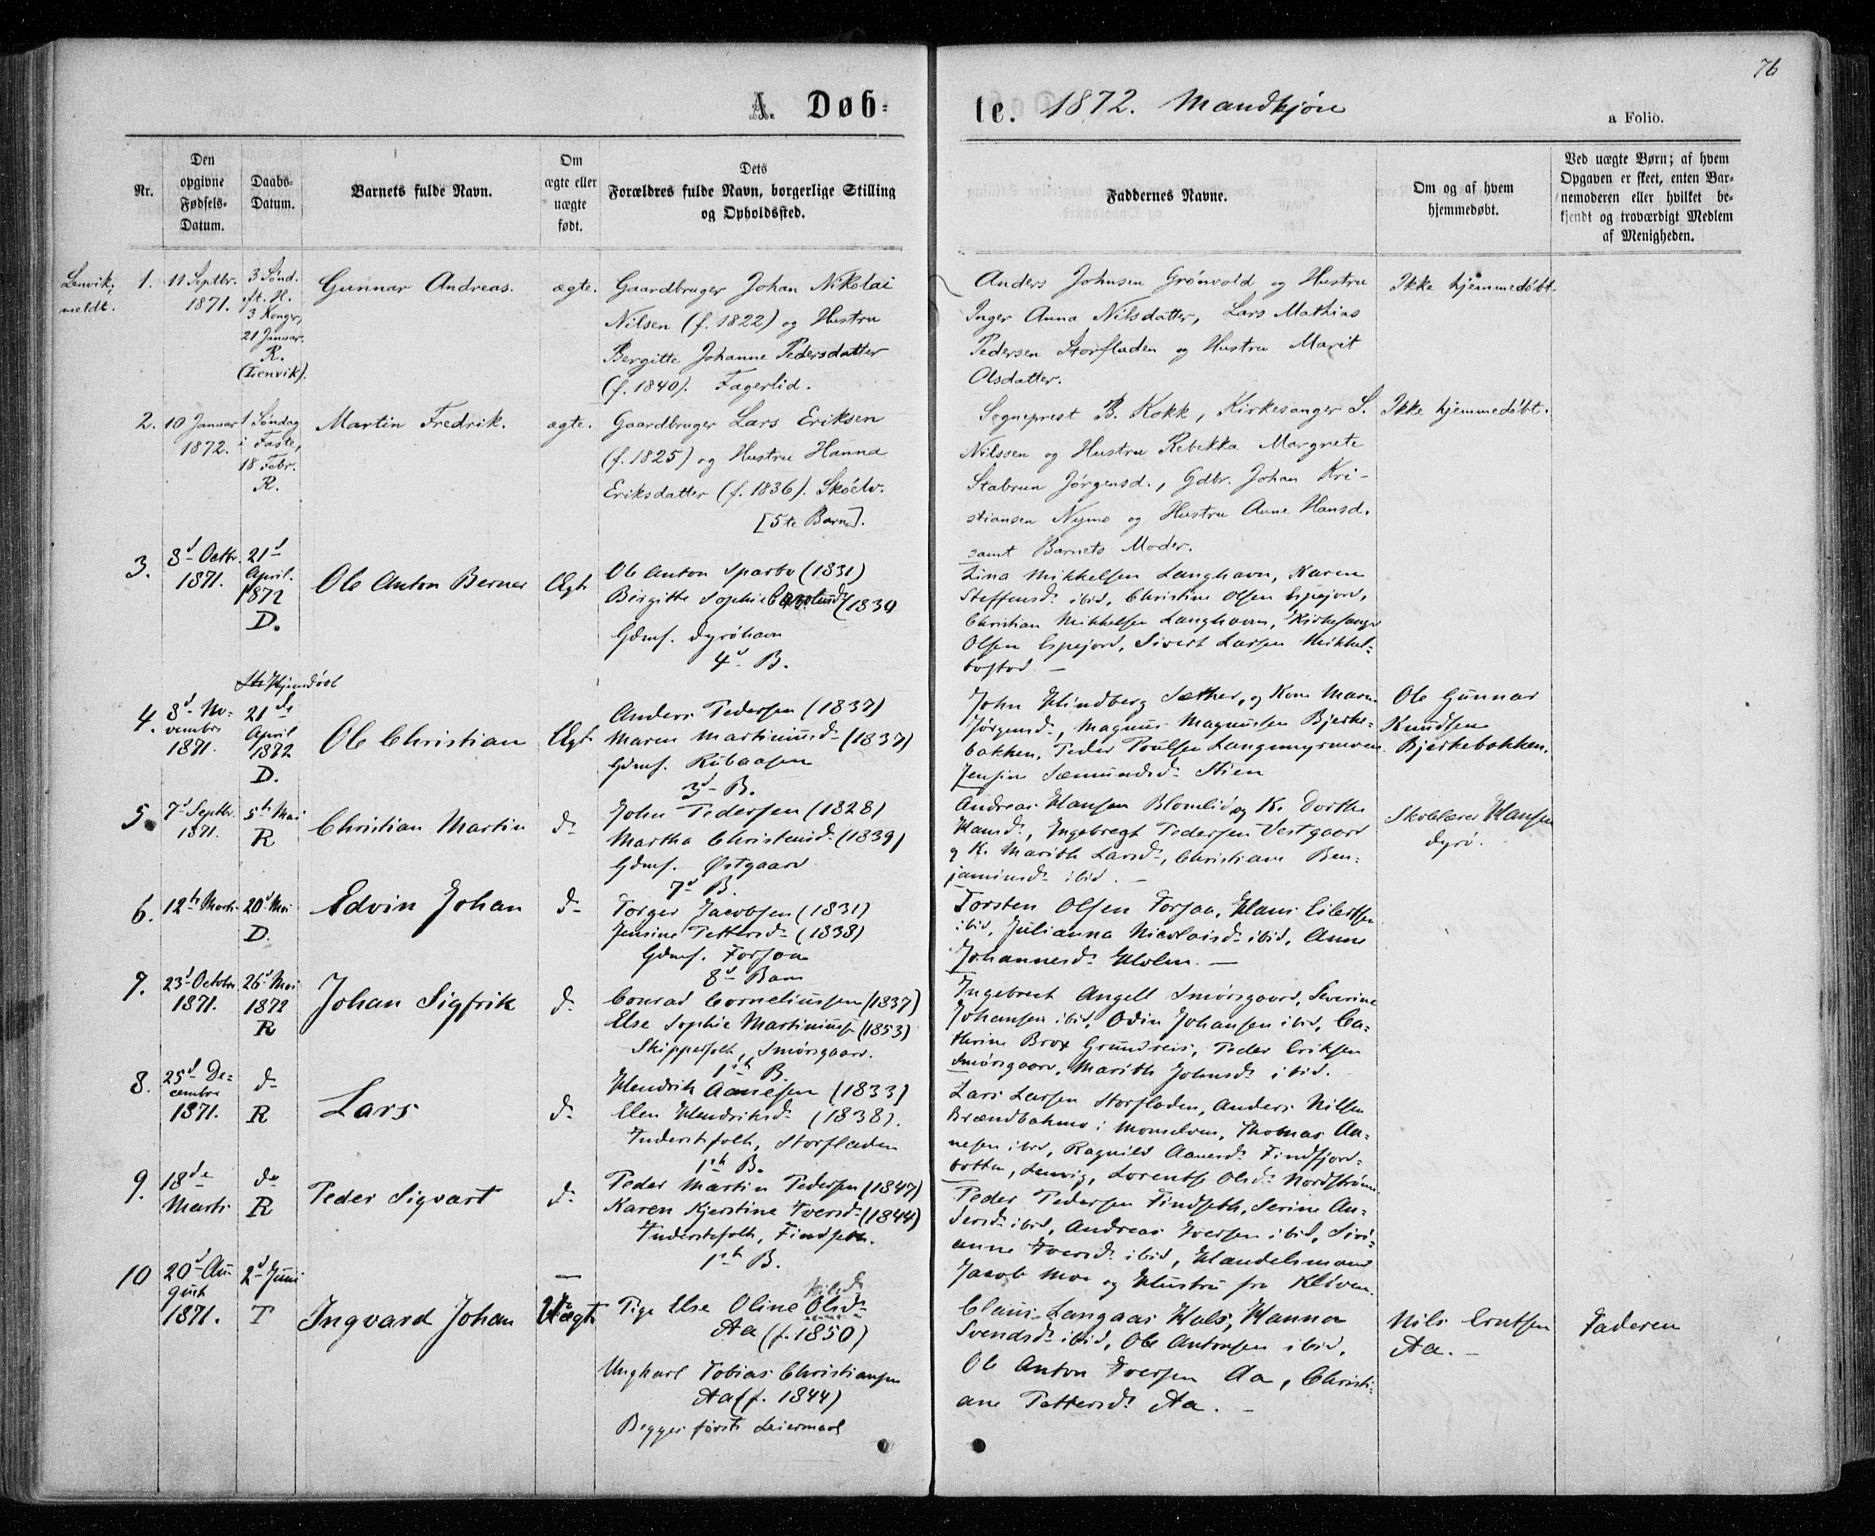 76
A. Døb-
te. 1872. Mandkjøn
a Folio.
Nr.
Den
opgivne
Fødsels-
Datum.
Daabs-
Datum.
Barnets fulde Navn.
Om
ægte eller
uægte
født.
Dets
Forældres fulde Navn, borgerlige Stilling
og Opholdssted.
Faddernes Navne.
Om og af hvem
hjemmedøbt.
Ved uægte Børn; af hvem
Opgaven er skeet, enten Bar-
nemoderen eller hvilket be-
kjendt og troværdigt Medlem
af Menigheden.
Lenvik,
meldt.
1.
11 Septbr.
1871.
3 Sønd.
ft. H.
3 Konger,
21 Januar.
R.
(Lenvik).
Gunnar Andreas.
ægte.
Gaardbruger Johan Nikolai
Nilsen (f. 1822) og Hustru
Bergitte Johanne Pedersdatter
(f. 1840). Fagerlid.
Anders Johnsen Grønvold og Hustru
Inger Anna Nilsdatter, Lars Mathias
Pedersen Storfladen og Hustru Marit
Olsdatter.
Ikke hjemmedøbt.
2.
10 Januar
1872.
1 Søndag
i Faste,
18 Febr.
R.
Martin Fredrik.
ægte.
Gaardbruger Lars Eriksen
(f. 1825) og Hustru Hanna
Eriksdatter (f. 1836). Skøelv.
[5te Barn].
Sogneprest B. Kokk, Kirkesanger S.
Nilssen og Hustru Rebekka Margrete
Stabrun Jørgensd., Gdbr. Johan Kri-
stiansen Nymo og Hustru Anne Hansd.
samt Barnets Moder.
Ikke hjemmedøbt.
3.
8d Octbr.
1871.
21d
April.
1872
D.
Ole Anton Berner
Ægt
Ole Anton Sparbo (1831)
Birgitte Sophie (1830
Gdmf. Dyrøhavn
4d B.
Lina Mikkelsen Langhavn, Karen
Steffensd. ibid, Christine Olsen Espejord,
Christian Mikkelsen Langhavn, Kirkesanger
Olsen Espejord, Sivert Larsen Mikkel-
bostad. —
4.
8d No-
vembr
1871.
Hjemdøbt
21de
April
1872
D.
Ole Christian
Ægt
Anders Pedersen (1837)
Maren Martiniusd. (1837)
Gdmf. Kubaasen
3d B.
John Hindberg Sæther, og Kone Maren
Jørgensd., Magnus Magnussen Bjerke-
bakken, Peder Poulsen Langmyrmoen
Jensine Sæmundsd. Stien
Ole Gunnar
Knudsen
Bjerkebakken.
5.
7d Septbr.
1871.
5th Mai
R
Christian Martin
d.
John Pedersen (1828)
Martha Christensd. (1839)
Gdmf. Østgaard
7d B.
Andreas Hansen Blomlid og K. Dorthe
Hansd., Engebregt Pedersen Vestgaard
og K. Marith Larsd., Christiane Ben-
jaminsd. ibid. —
Skolelærer Hansen
Dyrø.
6.
12te Marts
20d Mai
D.
Edvin Johan
d.
Torger Jacobsen (1831)
Jensine Pettersd. (1838)
Gdmf. Forsaa
8d Barn
Torsten Olsen Forsaa, Hans Eilertsen
ibid, Julianna Nicolaisd. ibid, Anne
Johannesd. Holm. —
7.
23d Octobr
1871.
26d Mai
1872
R
Johan Sigfrik
d.
Conrad Corneliussen (1837)
Else Sophie Martinussd. (1853)
Skipperfolk, Smørsgaard.
1ste B.
Ingebrect Angell Smørsgaard, Severine
Johansen ibid, Odin Johansen ibid, Ca-
thrine Brox Grundreis, Peder Eriksen
Smørsgaard, Marith Johnsd. ibid.
8.
25d De-
cembre
1871.
d.
R
Lars
d.
Hendrik Aanesen (1833)
Elen Hendriksd. (1838).
Inderstfolk, Storfladen
1ste B.
Lars Larsen Storfladen, Anders Nilsen
Brændbakmo i Maalselven, Thomas Aa-
nesen ibid, Ragnild Aanesd. Findfjord-
botten, Lenvig, Lorentse Olsd. Nordstrømm
9.
18de
Marts
de
R
Peder Sigvart
d.
Peder Martin Pedersen (1847)
Karen Kjerstine Iversd. (1844)
Inderstfolk, Findseth.
1ste B.
Peder Pedersen Findseth, Serine An-
dersd. ibid, Andreas Iversen ibid, Siri-
anne Iversd. ibid, Handelsmand
Jacob Moe og Hustru fra Kløven.
10
20d Au-
gust
1871.
2d Juni
T
Ingvard Johan
Uægt
Pige Else Oline Olsd. Nilsd.
Aa (f. 1850)
Ungkarl Tobias Christiansen
Aa (f. 1844)
Begges første Leiermaal
Claus Langaas Hals, Hanna
Svendsd. ibid, Ole Antonsen ibid,
Ole Anton Iversen Aa, Christi-
ane Pettersd. Aa. —
Nils Erntsen
Aa. —
Faderen